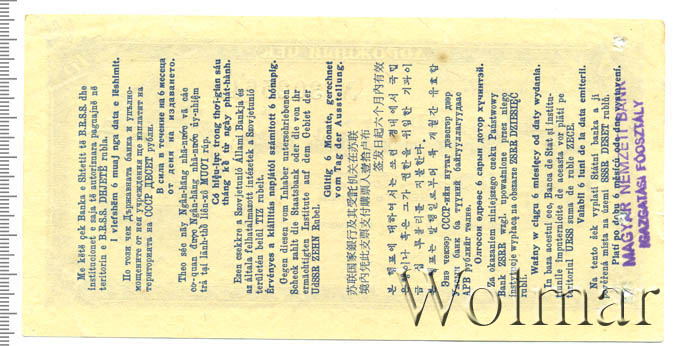 Me këtë çek Banka e Shtetit të B.R.S.S. dhe
institucionet e saja të autorizuara paguajnë në
teritorin e B.R.S.S. DHJETË rubla.
I vlefshëm 6 muaj nga data e lëshimit.
По този чек Държавната банка и упълно-
мощените от нея учреждения ще изплатят на
територията на СССР ДЕСЕТ рубли.
В сила в течение на 6 месеца
от деня на издаването.
Theo séc này Ngân-hàng Nhà-nước và các
cơ-quan được Ngân-hàng Nhà-nước ủy-nhiệm
trả tại lãnh-thổ liên-xô MƯỜI rúp.
Có hiệu-lực trong thời-gian sáu
tháng kể từ ngày phát-hành.
Ezen csekkre a Szovjetunió Állami Bankja és
az általa felhatalmazott intézetek a Szovjetunió
területén belül TIZ rubelt.
Érvényes a kiállítás napjától számított 6 hónapig.
Gegen diesen vom Inhaber unterschriebenen
Scheck zahlt die Staatsbank oder die von ihr
ermächtigten Institute auf dem Gebiet der
UdSSR ZEHN Rubel.
Gültig 6 Monate, gerechnet
vom Tag der Ausstellung.
苏联国家银行及其受托机关在苏联
境内凭此支票支付票人壹拾卢布
签发日起六个月内有效
Энэ чекээр СССР-ийн нутаг дэвсгэр дээр
Улсын банк ба түүний байгууллагуудаас
АРВ рублийг төлнө.
Олгосон өдрөөс 6 сарын дотор хүчинтэй.
Za okazaniem niniejszego czeku Państwowy
Bank ZSRR względnie upoważnione przez niego
instytucje wypłacą na obszarze ZSRR DZIESIĘĆ
rubli.
Ważny w ciągu 6 miesięcy od daty wydania.
In baza acestui cec Banca de Stat şi institu-
ţiunile împuternicite de aceasta vor plăti pe
teritoriul URSS suma de ruble ZECE.
Valabil 6 luni de la data emiterii.
Na tento šek vyplatí Státní banka a jí
pověřená místa na území SSSR DESET rublů.
Platí po dobu 6 měsíců ode dne vystavení.
MAGYAR NEMZETI BANK
IGAZGATÁSI FŐOSZTÁLY
Wolmar